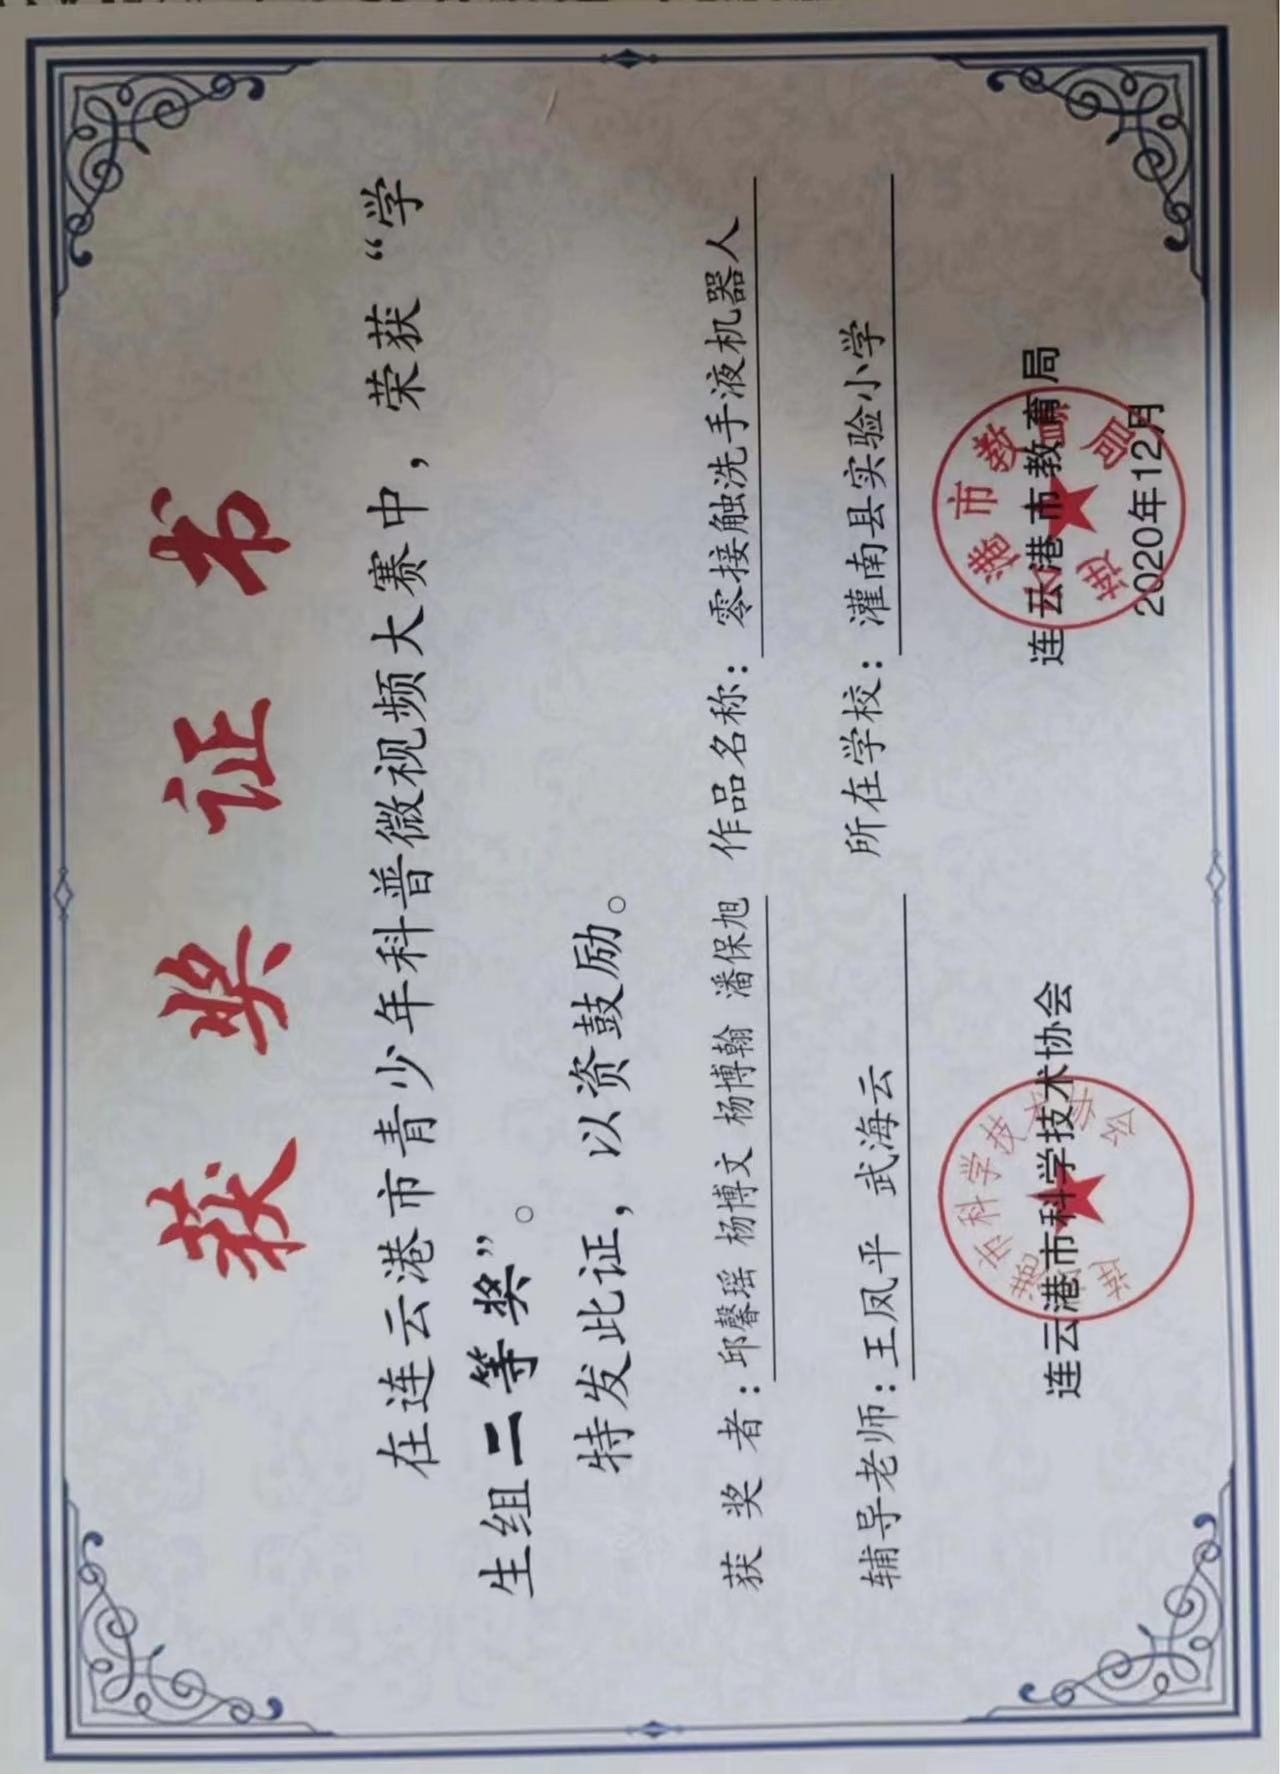 获奖证书
在连云港市青少年科普微视频大赛中，荣获“学
生组二等奖”。
特发此证，以资鼓励。
获 奖 者：邱馨瑶 杨博文 杨博翰 潘保旭 作品名称：零接触洗手液机器人
辅导老师：王凤平 武海云 所在学校：灌南县实验小学
连云港市科学技术协会 连云港市教育局
2020年12月